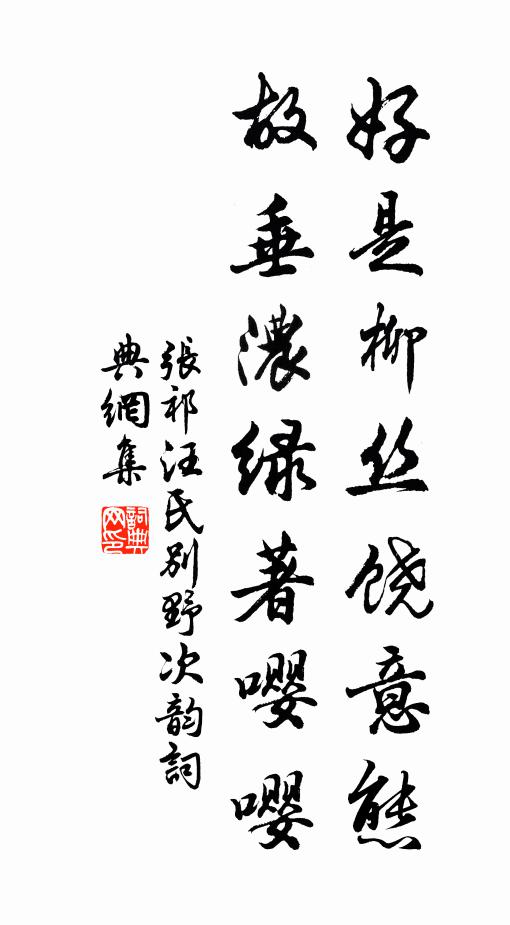 好是柳丝饶意態
故垂濃绿著嘤嘤
張祁汪氏别野次韵詞
典網集
詞典网印